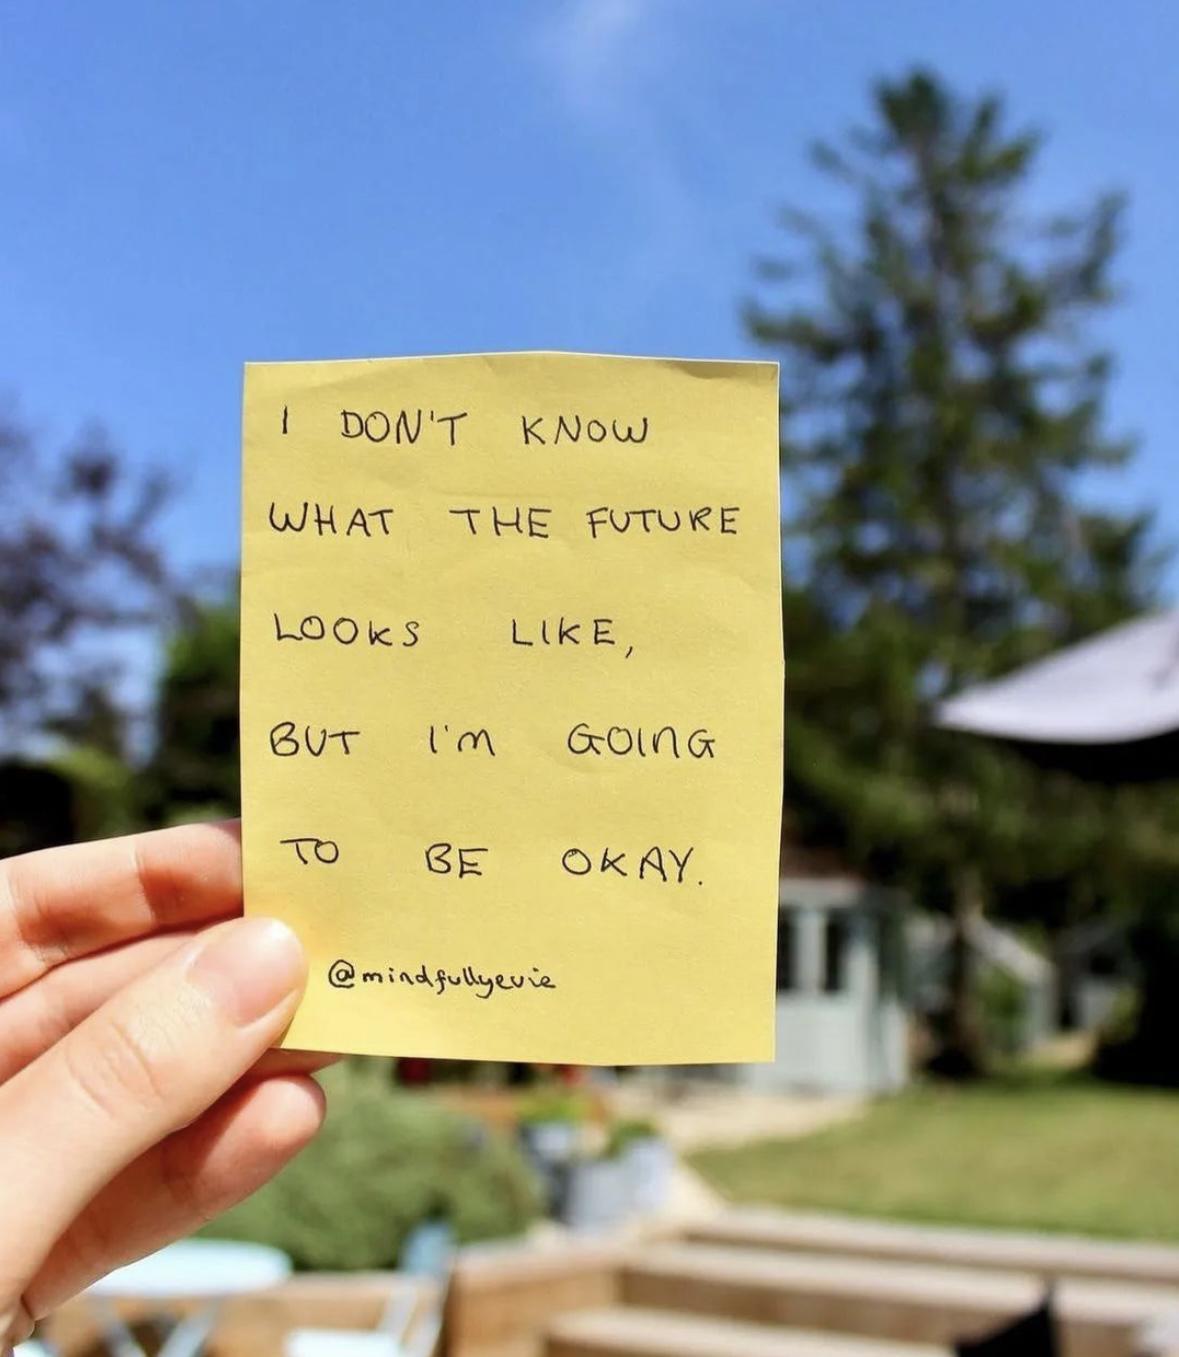 I DON'T KNOW
WHAT THE FUTURE
LOOKS LIKE,
BUT I'M GOING
TO BE OKAY.
@mindfullyevie